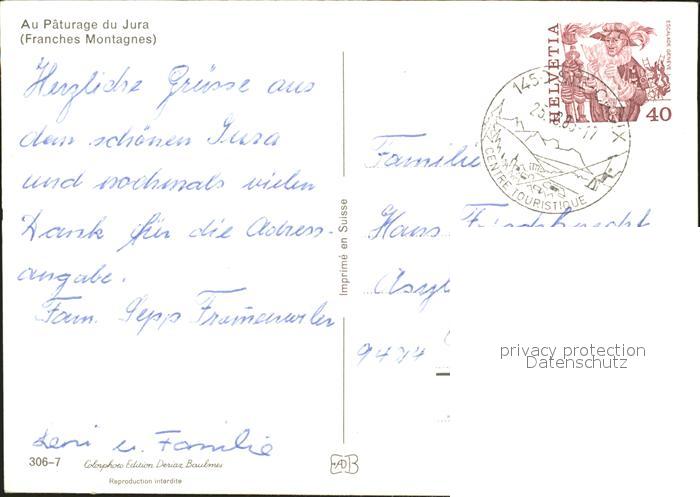 Au Pâturage du Jura
(Franches Montagnes)
Herzliche Grüsse aus
dem schönen Jura
und nochmals vielen
Dank für die Adress-
angabe.
Fam. Sepp
Leni u. Familie
306-7 Colorphoto Edition Deriaz Baulmes
Reproduction interdite
Imprimé en Suisse
HELVETIA
ESCALADE GENÈVE
40
CENTRE TOURISTIQUE
Familie
Hans
9414
privacy protection
Datenschutz